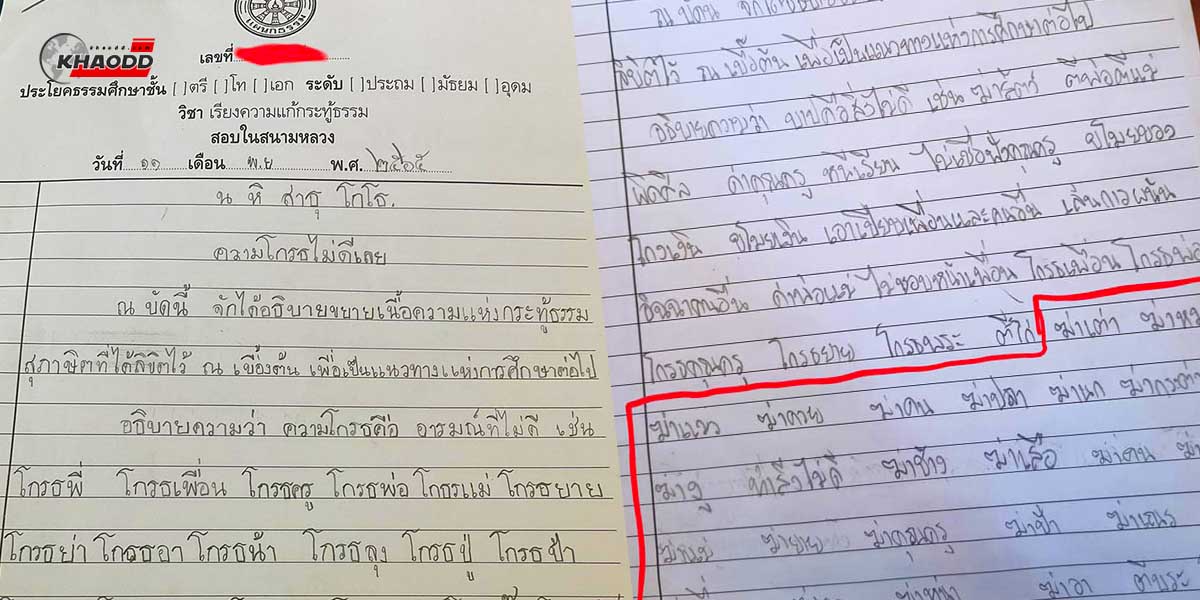 khaodd.com
KHAODD
แผนกธรรม
เลขที่
ประโยคธรรมศึกษาชั้น [ ]ตรี [ ]โท [ ]เอก ระดับ [ ]ประถม [ ]มัธยม [ ]อุดม
วิชา เรียงความแก้กระทู้ธรรม
สอบในสนามหลวง
วันที่ ๑๑ เดือน พ.ย พ.ศ. ๒๕๖๕
น หิ สาธุ โกโธ.
ความโกรธไม่ดีเลย
ณ บัดนี้ จักได้อธิบายขยายเนื้อความแห่งกระทู้ธรรม
สุภาษิตที่ได้ลิขิตไว้ ณ เบื้องต้น เพื่อเป็นแนวทางแห่งการศึกษาต่อไป
อธิบายความว่า ความโกรธคือ อารมณ์ที่ไม่ดี เช่น
โกรธพี่ โกรธเพื่อน โกรธครู โกรธพ่อ โกธรแม่ โกรธยาย
โกรธย่า โกรธอา โกรธน้า โกรธลุง โกรธปู่ โกรธป้า
ณ บัดนี้
ลิขิตไว้ ณ เบื้องต้น เพื่อเป็นแนวทางแห่งการศึกษาต่อไป
อธิบายความว่า บาปคือสิ่งไม่ดี เช่น ฆ่าสัตว์ ตีพ่อตีแม่
ผิดศีล ด่าคุณครู หนีเรียน ไม่เชื่อฟังคุณครู ขโมยของ
โกงเงิน ขโมยเงิน เอาเปรียบเพื่อนและคนอื่น เล่นการพนัน
คนอื่น ด่าพ่อแม่ ไม่ชอบหน้าเพื่อน โกรธเพื่อน โกรธพ่อ
โกรธคุณครู โกรธยาย โกรธพระ ตีไก่ ฆ่าเต่า
ฆ่าแมว ฆ่าควาย ฆ่าคน ฆ่าปลา ฆ่านก ฆ่ากระต่าย
ฆ่างู ทำสิ่งไม่ดี ฆ่าช้าง ฆ่าเสือ ฆ่าคน
ฆ่าแม่ ฆ่ายาย ฆ่าคุณครู ฆ่าป้า ฆ่าเณร
ฆ่าอา ตีพระ